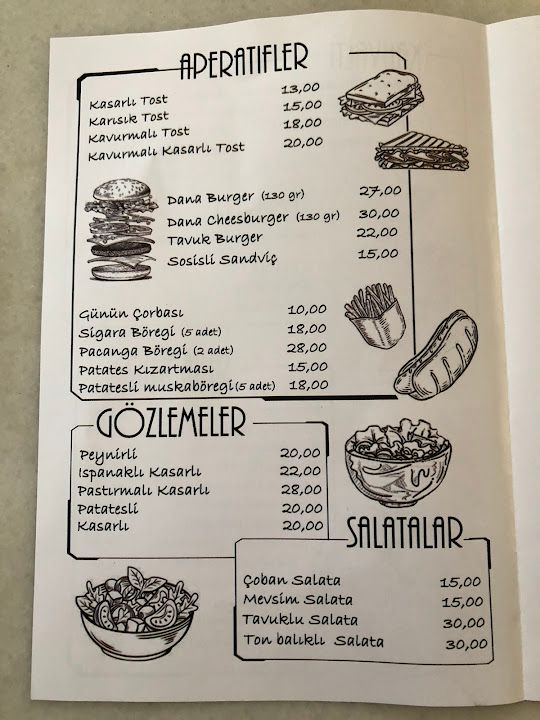 APERATIFLER
Kasarlı Tost 13,00
Karısık Tost 15,00
Kavurmalı Tost 18,00
Kavurmalı Kasarlı Tost 20,00
Dana Burger (130 gr) 27,00
Dana Cheesburger (130 gr) 30,00
Tavuk Burger 22,00
Sosisli Sandviç 15,00
Günün Çorbası 10,00
Sigara Böregi (5 adet) 18,00
Pacanga Böregi (2 adet) 28,00
Patates Kızartması 15,00
Patatesli muskaböregi (5 adet) 18,00
GÖZLEMELER
Peynirli 20,00
Ispanaklı Kasarlı 22,00
Pastırmalı Kasarlı 28,00
Patatesli 20,00
Kasarlı 20,00
SALATALAR
Çoban Salata 15,00
Mevsim Salata 15,00
Tavuklu Salata 30,00
Ton balıklı Salata 30,00